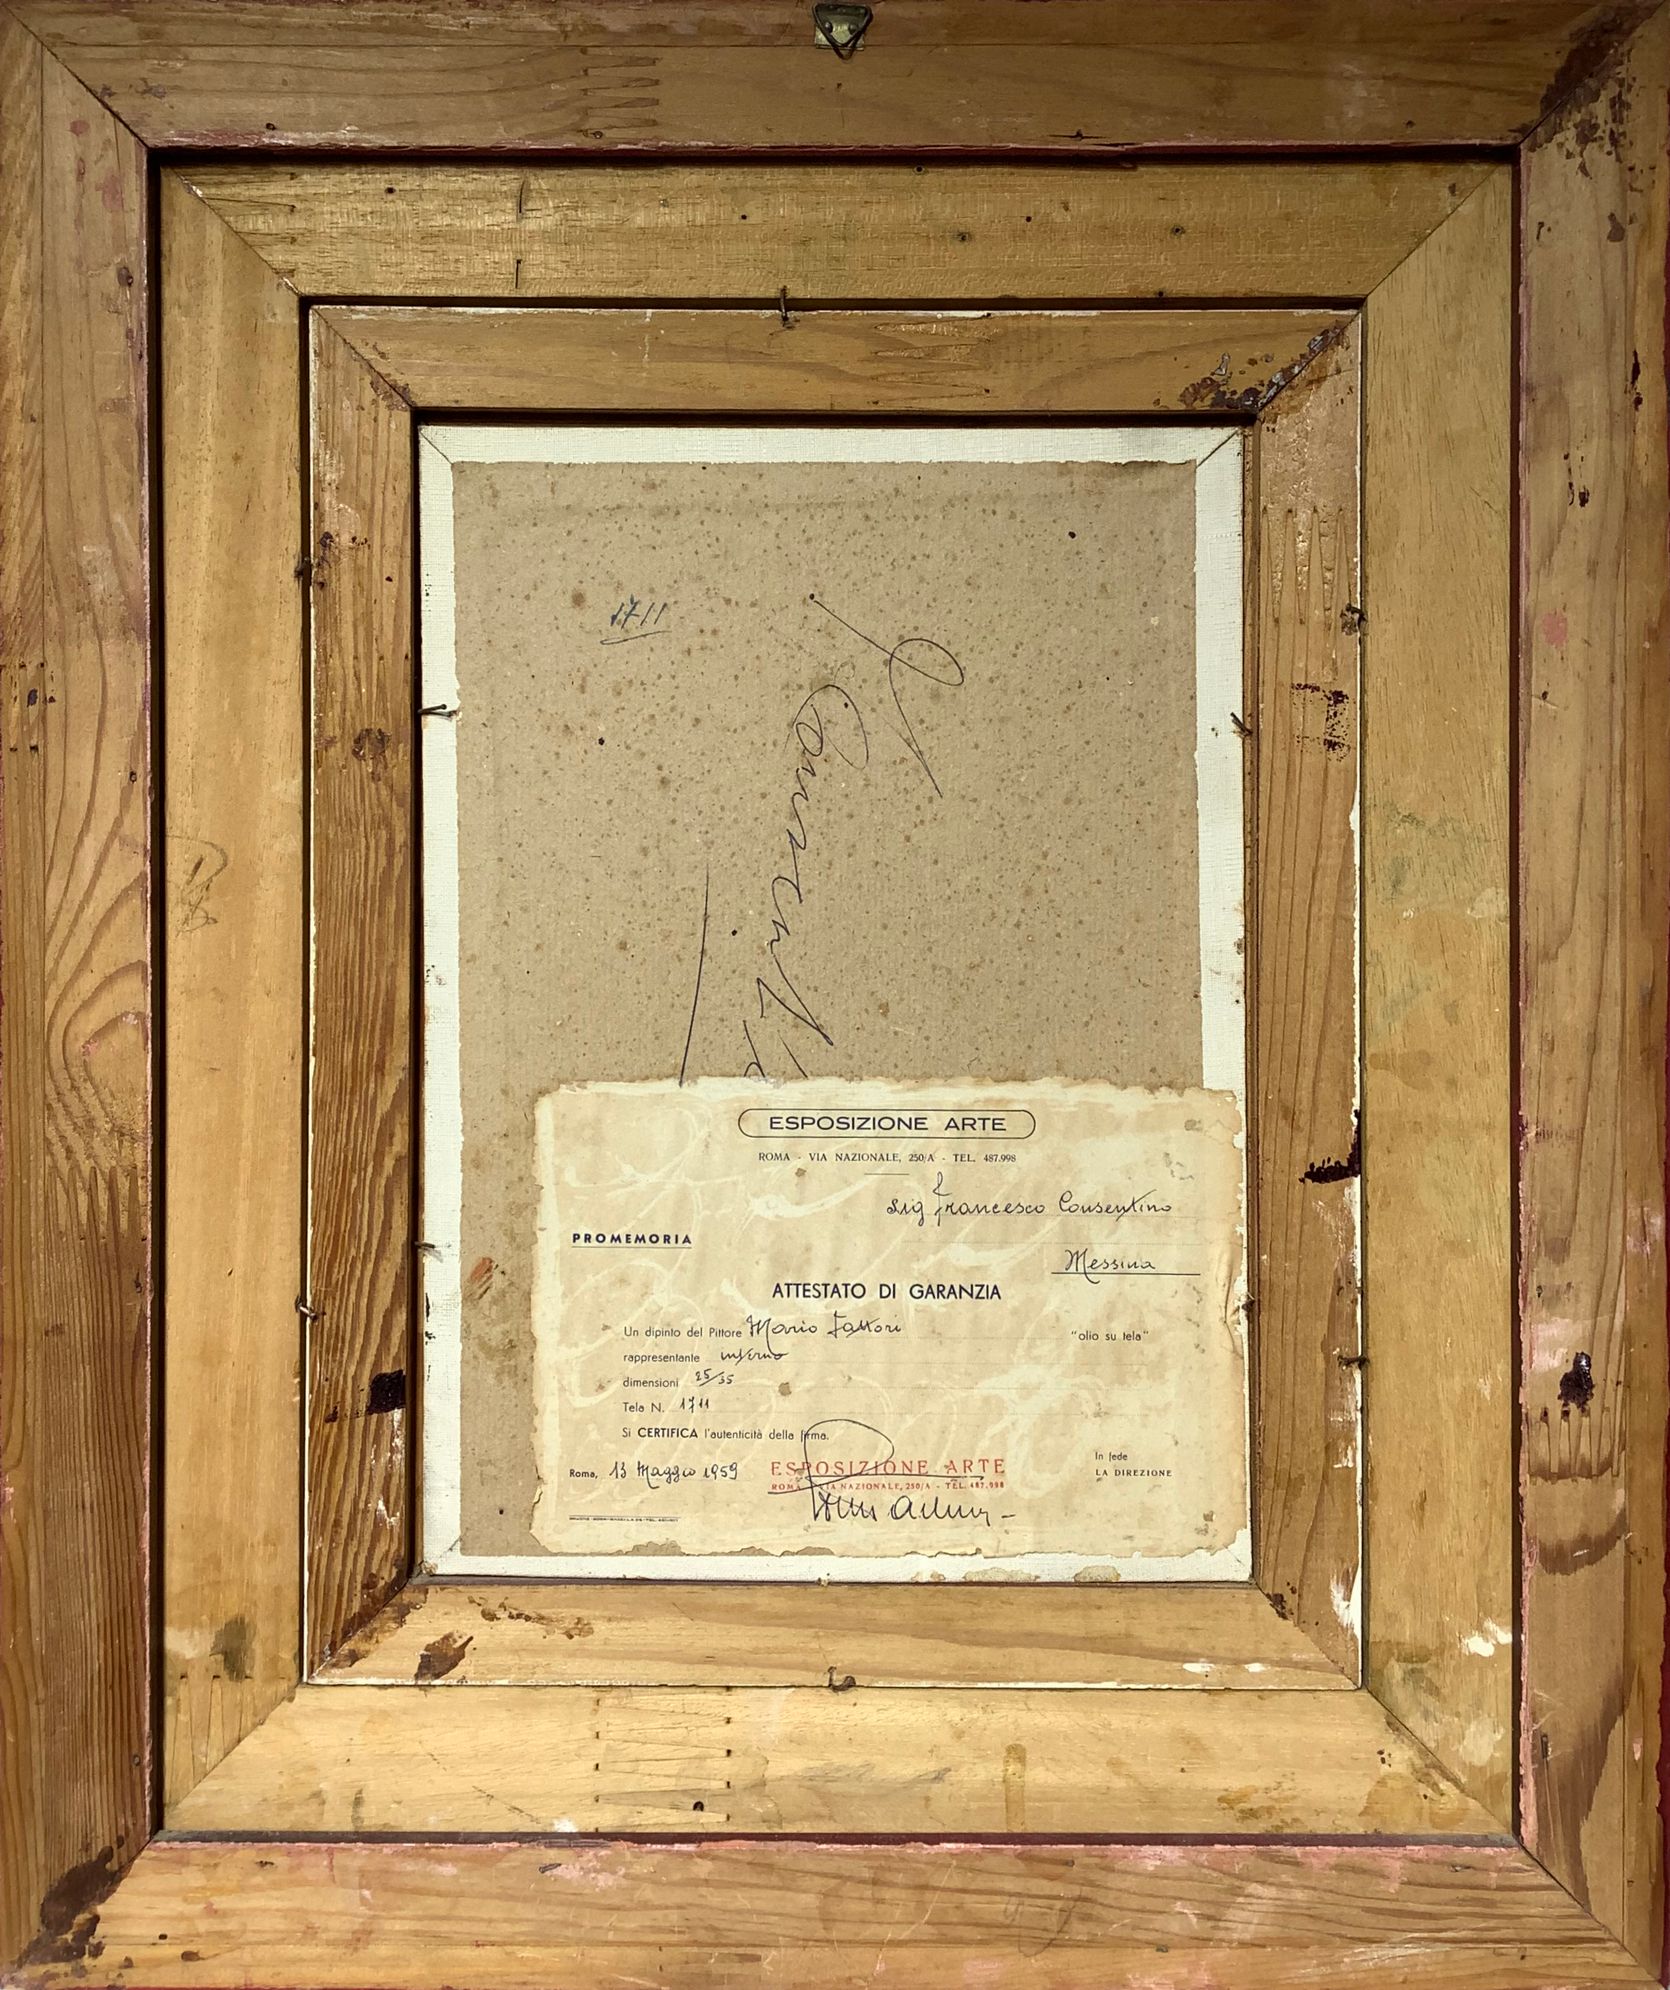 1711
ESPOSIZIONE ARTE
ROMA - VIA NAZIONALE, 250/A - TEL. 487.998
Sig Francesco Consentino
PROMEMORIA
Messina
ATTESTATO DI GARANZIA
Un dipinto del Pittore Mario Fattori "olio su tela"
rappresentante
dimensioni 25/35
Tela N. 1711
Si CERTIFICA l'autenticità della firma.
In fede
Roma, 13 Maggio 1959 ESPOSIZIONE ARTE LA DIREZIONE
ROMA - VIA NAZIONALE, 250/A - TEL. 487.998